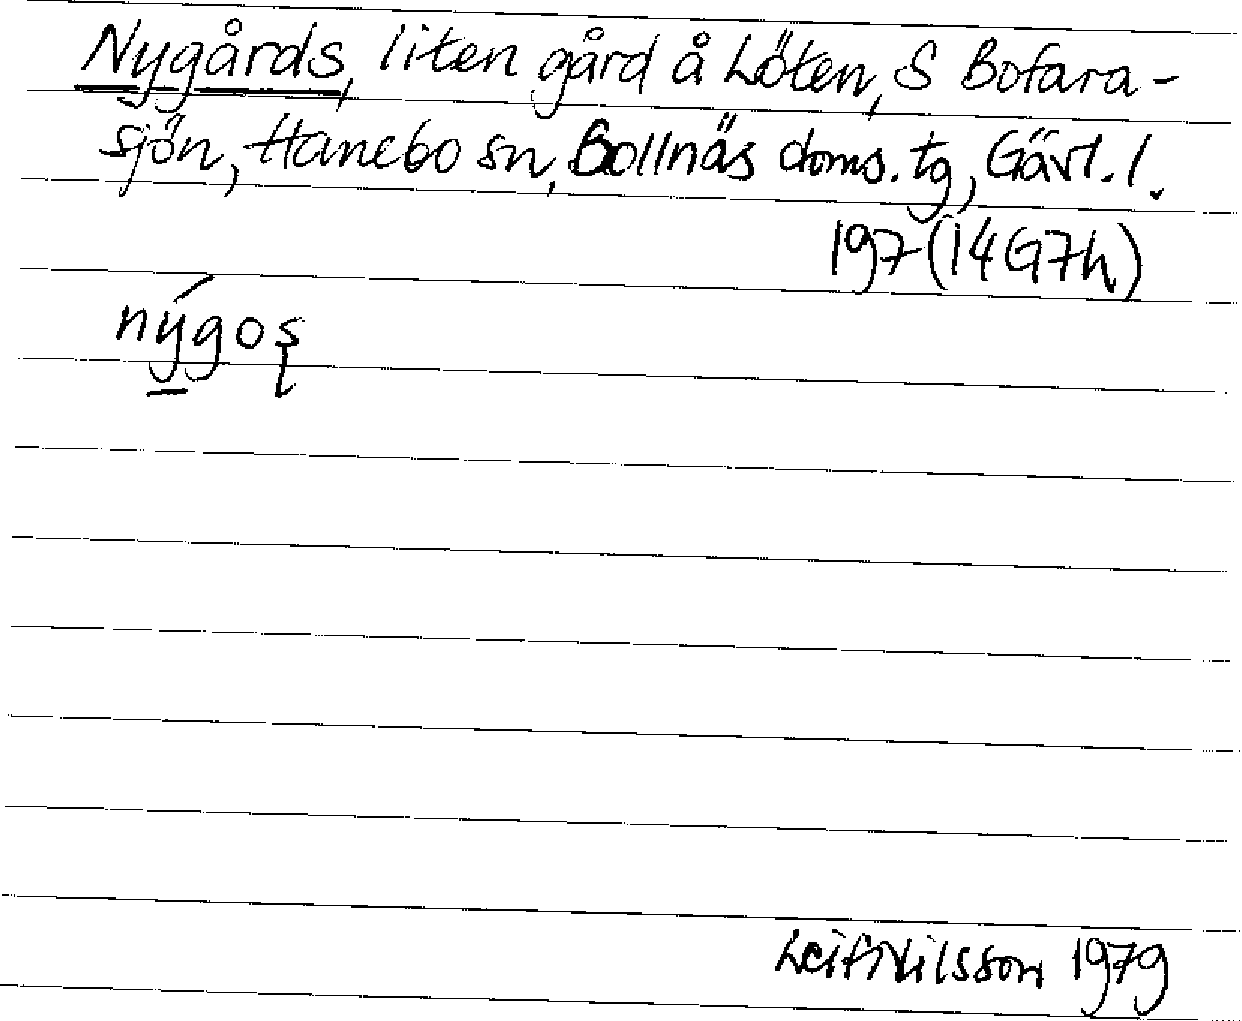 Nygårds, liten gård å Löten, S Bofara-
sjön, Hanebo sn, Bollnäs doms. tg, Gävl. l.
197 (14G7h)
nýgoş
Leif Nilsson 1979